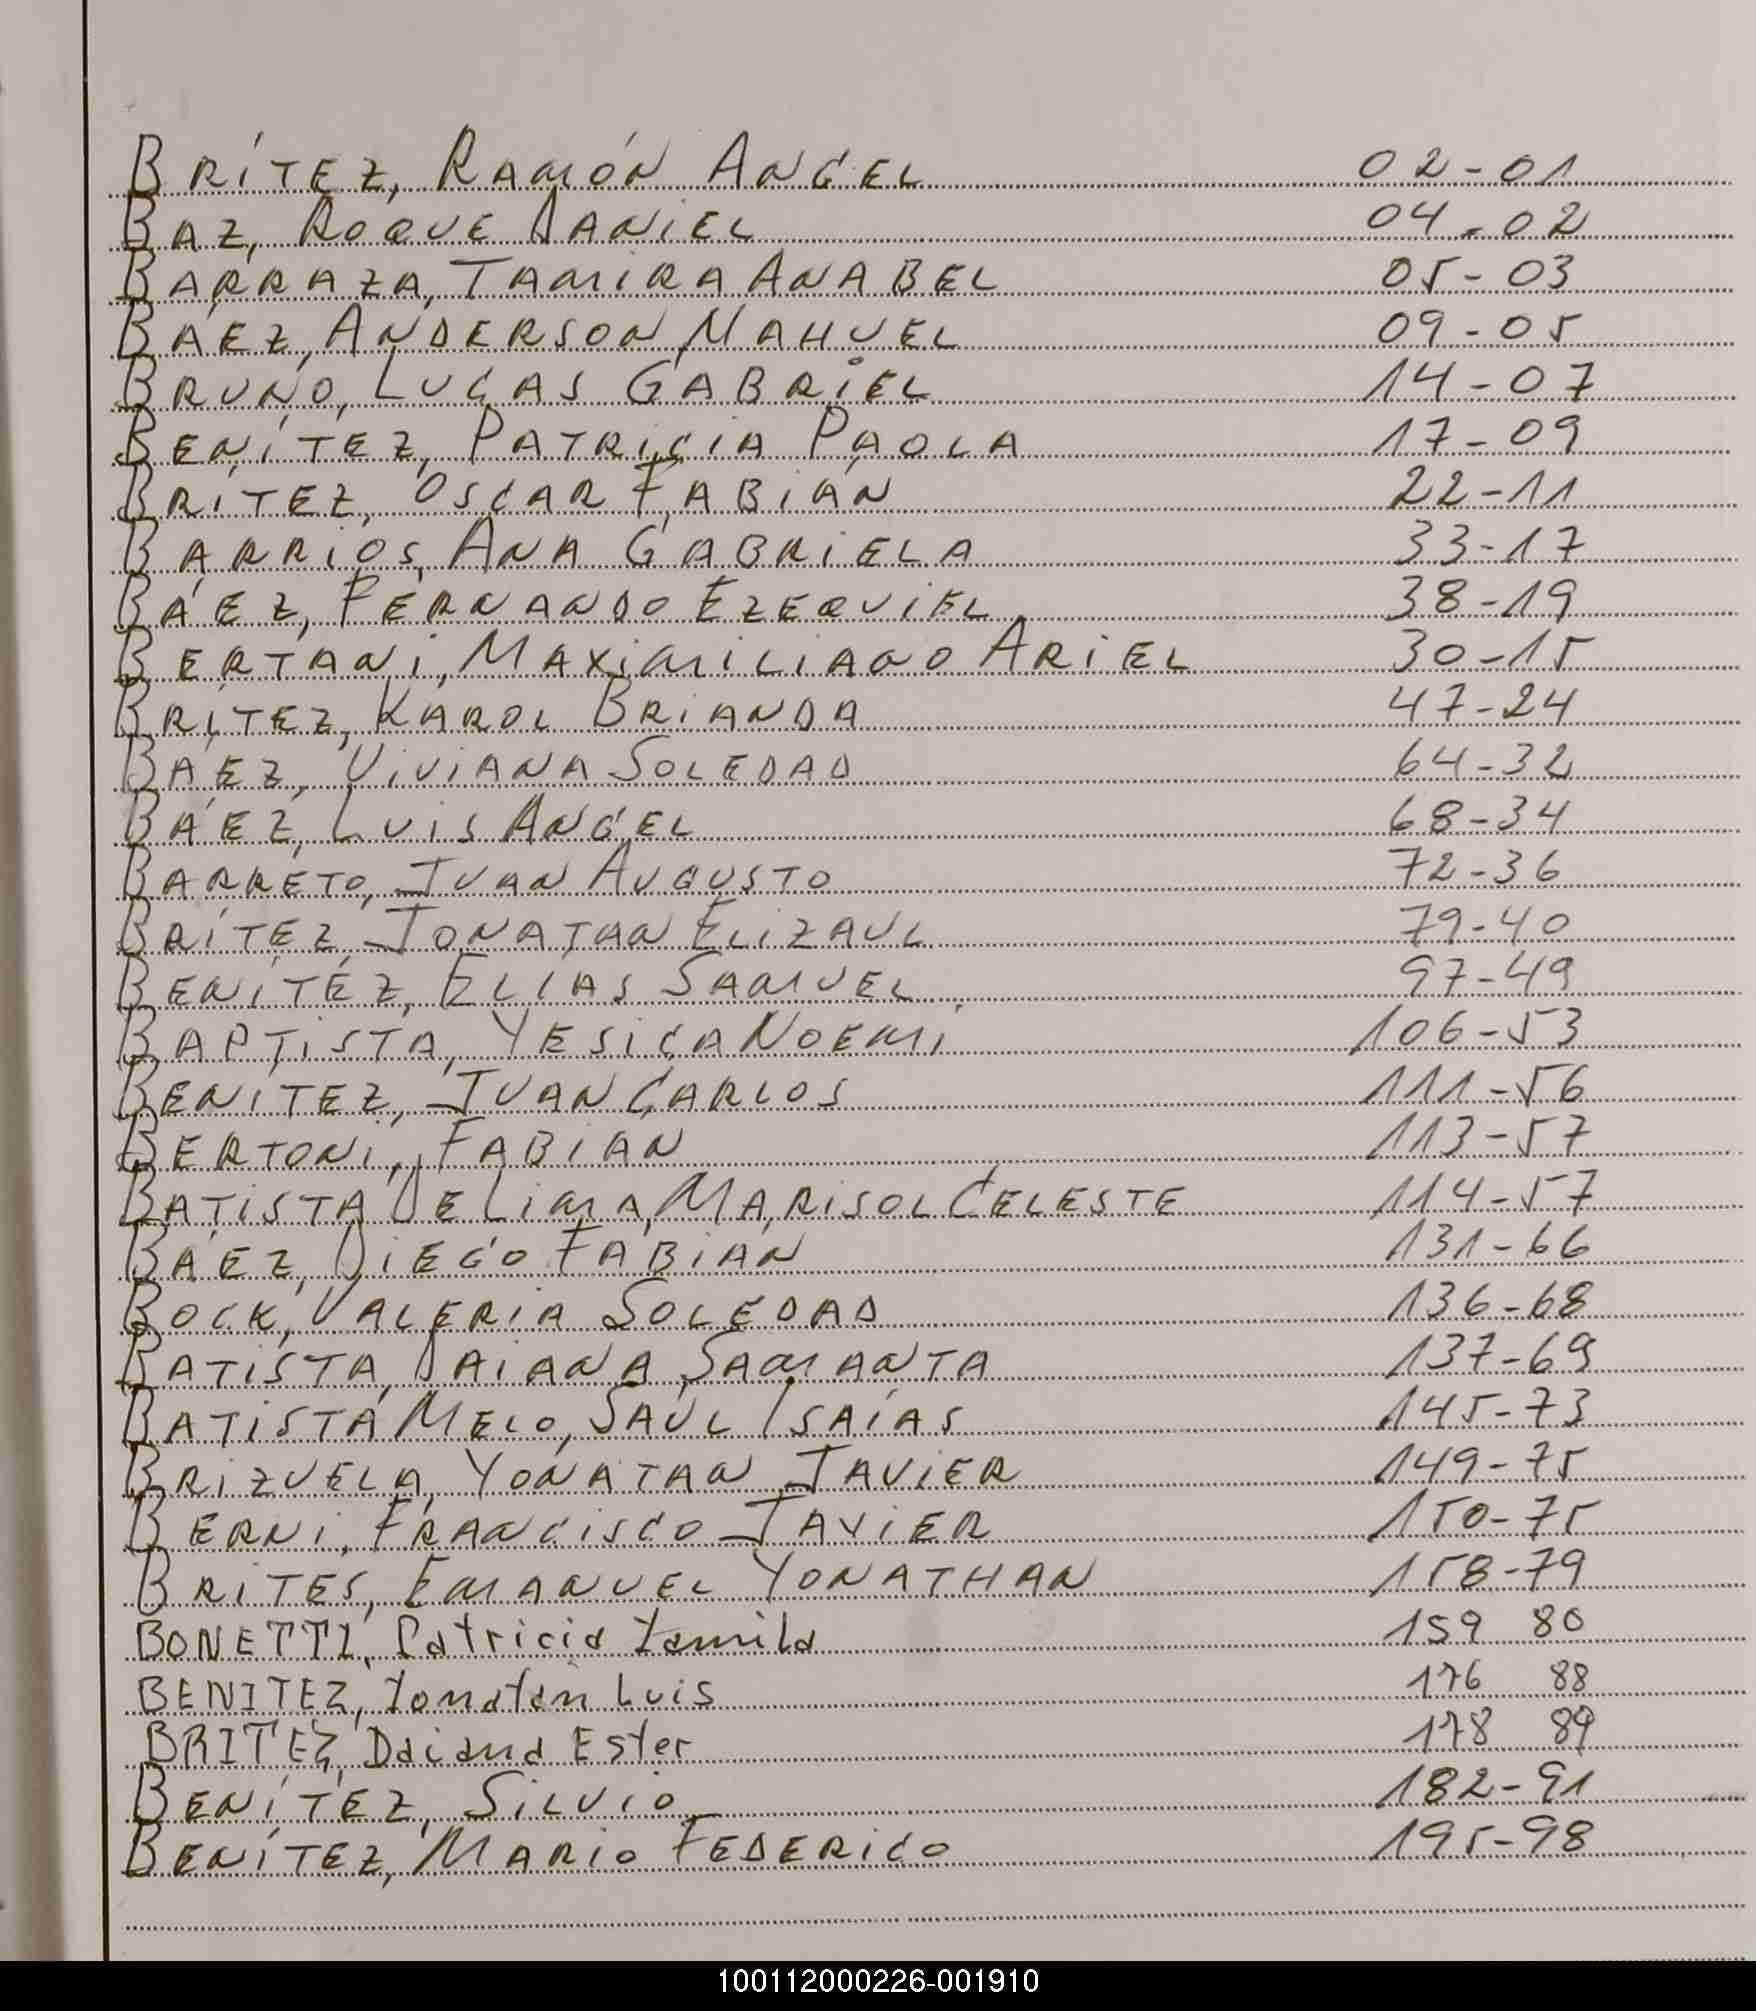 BRÍTEZ, RAMÓN ANGEL 02-01
BAZ, ROQUE DANIEL 04-02
BARRAZA, TAMIRA ANABEL 05-03
BÁEZ, ANDERSON NAHUEL 09-05
BRUNO, LUCAS GABRIEL 14-07
BENÍTEZ, PATRICIA PAOLA 17-09
BRÍTEZ, OSCAR FABIÁN 22-11
BARRIOS, ANA GABRIELA 33-17
BÁEZ, FERNANDO EZEQUIEL 38-19
BERTANI, MAXIMILIANO ARIEL 30-15
BRITEZ, KAROL BRIANDA 47-24
BÁEZ, VIVIANA SOLEDAD 64-32
BÁEZ, LUIS ANGEL 68-34
BARRETO, JUAN AUGUSTO 72-36
BRÍTEZ, JONATAN ELIZAUL 79-40
BENÍTEZ, ELIAS SAMUEL 97-49
BAPTISTA, YESICA NOEMI 106-53
BENITEZ, JUAN CARLOS 111-56
BERTONI, FABIAN 113-57
BATISTA DE LIMA, MARISOL CELESTE 114-57
BÁEZ, DIEGO FABIAN 131-66
BOCK, VALERIA SOLEDAD 136-68
BATISTA, DAIANA SAMANTA 137-69
BATISTA MELO, SAÚL ISAÍAS 145-73
BRIZUELA, YONATAN JAVIER 149-75
BERNI, FRANCISCO JAVIER 150-75
BRITES, EMANUEL YONATHAN 158-79
BONETTI, Patricia Yamila 159 80
BENITEZ, Yonatan Luis 176 88
BRITEZ, Daiana Ester 178 89
BENÍTEZ, SILVIO 182-91
BENÍTEZ, MARIO FEDERICO 195-98
100112000226-001910